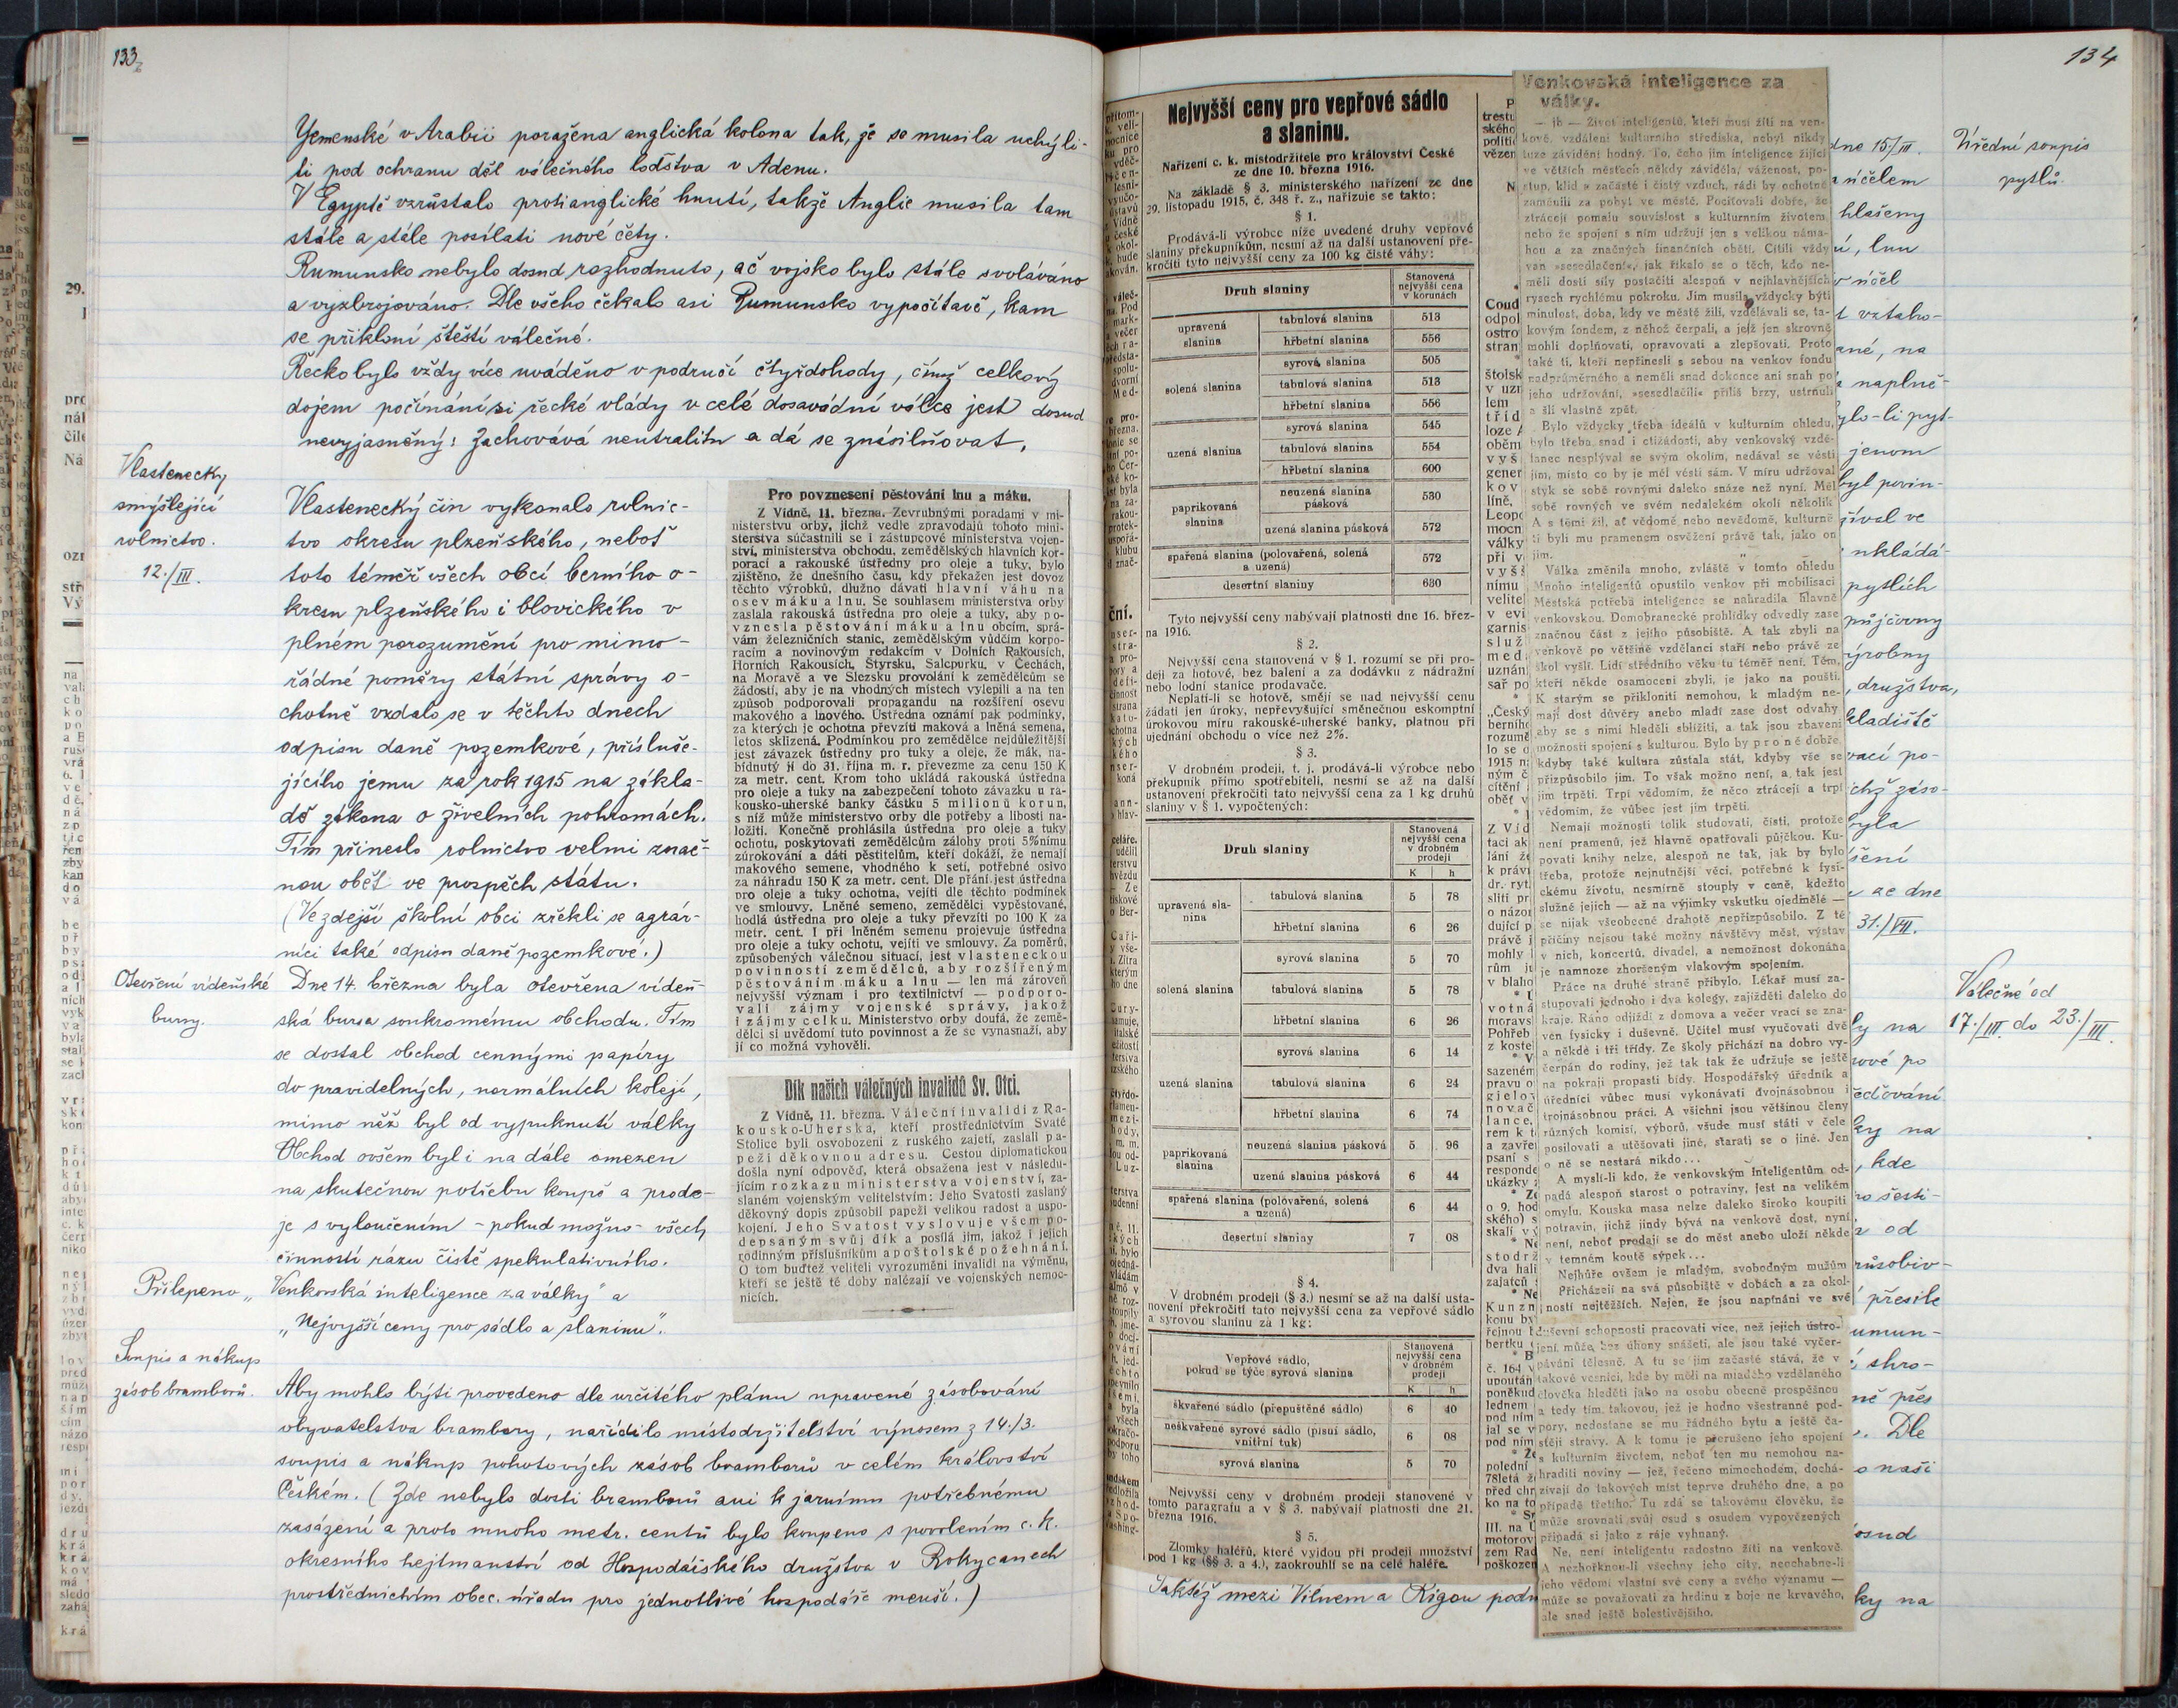 133
Yemenské v Arabii poražena anglická kolona tak, že se musila uchýli-
ti pod ochranu děl válečného loďstva v Adenu.
V Egyptě vzrůstalo protianglické hnutí, takže Anglie musila tam
stále a stále posílati nové čety.
Rumunsko nebylo dosud rozhodnuto, ač vojsko bylo stále svoláváno
a vyzbrojováno. Dle všeho čekalo asi Rumunsko vypočítavě, kam
se přikloní štěstí válečné.
Řecko bylo vždy více uváděno v područí čtyřdohody, čímž celkový
dojem počínání si řecké vlády v celé dosavádní válce jest dosud
nevyjasněný: Zachovává neutralitu a dá se znásilňovat.
Vlastenecky
smýšlející
rolnictvo.
12./III.
Vlastenecký čin vykonalo rolnic-
tvo okresu plzeňského, neboť
toto téměř všech obcí berního o-
kresu plzeňského i blovického v
plném porozumění pro mimo-
řádné poměry státní správy o-
chotně vzdalo se v těchto dnech
odpisu daně pozemkové, přísluše-
jícího jemu za rok 1915 na zákla-
dě zákona o živelních pohromách.
Tím přineslo rolnictvo velmi znač-
nou oběť ve prospěch státu.
(Ve zdejší školní obci zřekli se agrár-
níci také odpisu daně pozemkové.)
Otevření vídeňské
bursy.
Dne 14. března byla otevřena vídeň-
ská bursa soukromému obchodu. Tím
se dostal obchod cennými papíry
do pravidelných, normálních kolejí,
mimo něž byl od vypuknutí války
Obchod ovšem byl i na dále omezen
na skutečnou potřebu koupě a prode-
je s vyloučením - pokud možno - všech
činností rázu čistě spekulativního.
Přilepeno „Venkovská inteligence za války" a
„Nejvyšší ceny pro sádlo a slaninu".
Soupis a nákup
zásob bramborů.
Aby mohlo býti provedeno dle určitého plánu upravené zásobování
obyvatelstva brambory, nařídilo místodržitelství výnosem z 14./3.
soupis a nákup pohotových zásob bramborů v celém království
Českém. (Zde nebylo dosti bramborů ani k jarnímu potřebnému
zasázení a proto mnoho metr. centů bylo koupeno s povolením c. k.
okresního hejtmanství od Hospodářského družstva v Rokycanech
prostřednictvím obec. úřadu pro jednotlivé hospodáře menší.)
Pro povznesení pěstování lnu a máku.
Z Vídně, 11. března. Zevrubnými poradami v mi-
nisterstvu orby, jichž vedle zpravodajů tohoto mini-
sterstva súčastnili se i zástupcové ministerstva vojen-
ství, ministerstva obchodu, zemědělských hlavních kor-
porací a rakouské ústředny pro oleje a tuky, bylo
zjištěno, že dnešního času, kdy překažen jest dovoz
těchto výrobků, dlužno dávati hlavní váhu na
osev máku a lnu. Se souhlasem ministerstva orby
zaslala rakouská ústředna pro oleje a tuky, aby po-
vznesla pěstování máku a lnu obcím, sprá-
vám železničních stanic, zemědělským vůdčím korpo-
racím a novinovým redakcím v Dolních Rakousích,
Horních Rakousích, Štyrsku, Salcpurku, v Čechách,
na Moravě a ve Slezsku provolání k zemědělcům se
žádostí, aby je na vhodných místech vylepili a na ten
způsob podporovali propagandu na rozšíření osevu
makového a lnového. Ústředna oznámí pak podmínky,
za kterých je ochotna převzíti maková a lněná semena,
letos sklizená. Podmínkou pro zemědělce nejdůležitější
jest závazek ústředny pro tuky a oleje, že mák, na-
bídnutý jí do 31. října m. r. převezme za cenu 150 K
za metr. cent. Krom toho ukládá rakouská ústředna
pro oleje a tuky na zabezpečení tohoto závazku u ra-
kousko-uherské banky částku 5 milionů korun,
s níž může ministerstvo orby dle potřeby a libosti na-
ložiti. Konečně prohlásila ústředna pro oleje a tuky
ochotu, poskytovati zemědělcům zálohy proti 5%nímu
zúrokování a dáti pěstitelům, kteří dokáží, že nemají
makového semene, vhodného k setí, potřebné osivo
za náhradu 150 K za metr. cent. Dle přání jest ústředna
pro oleje a tuky ochotna, vejíti dle těchto podmínek
ve smlouvy. Lněné semeno, zemědělci vypěstované,
hodlá ústředna pro oleje a tuky převzíti po 100 K za
metr. cent. I při lněném semenu projevuje ústředna
pro oleje a tuky ochotu, vejíti ve smlouvy. Za poměrů,
způsobených válečnou situací, jest vlasteneckou
povinností zemědělců, aby rozšířeným
pěstováním máku a lnu — len má zároveň
nejvyšší význam i pro textilnictví — podporo-
vali zájmy vojenské správy, jakož
i zájmy celku. Ministerstvo orby doufá, že země-
dělci si uvědomí tuto povinnost a že se vynasnaží, aby
jí co možná vyhověli.
Dík našich válečných invalidů Sv. Otci.
Z Vídně, 11. března. Váleční invalidi z Ra-
kousko-Uherska, kteří prostřednictvím Svaté
Stolice byli osvobozeni z ruského zajetí, zaslali pa-
peži děkovnou adresu. Cestou diplomatickou
došla nyní odpověď, která obsažena jest v následu-
jícím rozkazu ministerstva vojenství, za-
slaném vojenským velitelstvím: Jeho Svatosti zaslaný
děkovný dopis způsobil papeži velikou radost a uspo-
kojení. Jeho Svatost vyslovuje všem po-
depsaným svůj dík a posílá jim, jakož i jejich
rodinným příslušníkům apoštolské požehnání.
O tom buďtež veliteli vyrozuměni invalidi na výměnu,
kteří se ještě té doby nalézají ve vojenských nemoc-
nicích.
134
Nejvyšší ceny pro vepřové sádlo
a slaninu.
Nařízení c. k. místodržitele pro království České
ze dne 10. března 1916.
Na základě § 3. ministerského nařízení ze dne
29. listopadu 1915, č. 348 ř. z., nařizuje se takto:
§ 1.
Prodává-li výrobce níže uvedené druhy vepřové
slaniny překupníkům, nesmí až na další ustanovení pře-
kročiti tyto nejvyšší ceny za 100 kg čisté váhy:
Druh slaniny Stanovená nejvyšší cena v korunách
upravená slanina tabulová slanina 513
hřbetní slanina 556
solená slanina syrová slanina 505
tabulová slanina 513
hřbetní slanina 556
uzená slanina syrová slanina 545
tabulová slanina 554
hřbetní slanina 600
paprikovaná slanina neuzená slanina pásková 530
uzená slanina pásková 572
spařená slanina (polovařená, solená a uzená) 572
desertní slaniny 630
Tyto nejvyšší ceny nabývají platnosti dne 16. břez-
na 1916.
§ 2.
Nejvyšší cena stanovená v § 1. rozumí se při pro-
deji za hotové, bez balení a za dodávku z nádražní
nebo lodní stanice prodavače.
Neplatí-li se hotově, smějí se nad nejvyšší cenu
žádati jen úroky, nepřevyšující směnečnou eskomptní
úrokovou míru rakouské-uherské banky, platnou při
ujednání obchodu o více než 2%.
§ 3.
V drobném prodeji, t. j. prodává-li výrobce nebo
překupník přímo spotřebiteli, nesmí se až na další
ustanovení překročiti tato nejvyšší cena za 1 kg druhů
slaniny v § 1. vypočtených:
Druh slaniny Stanovená nejvyšší cena v drobném prodeji
K h
upravená sla-nina tabulová slanina 5 78
hřbetní slanina 6 26
solená slanina syrová slanina 5 70
tabulová slanina 5 78
hřbetní slanina 6 26
uzená slanina syrová slanina 6 14
tabulová slanina 6 24
hřbetní slanina 6 74
paprikovaná slanina neuzená slanina pásková 5 96
uzená slanina pásková 6 44
spařená slanina (polovařená, solená a uzená) 6 44
desertní slaniny 7 08
§ 4.
V drobném prodeji (§ 3.) nesmí se až na další usta-
novení překročiti tato nejvyšší cena za vepřové sádlo
a syrovou slaninu za 1 kg:
Vepřové sádlo, pokud se týče syrová slanina Stanovená nejvyšší cena v drobném prodeji
K h
škvařené sádlo (přepuštěné sádlo) 6 40
neškvařené syrové sádlo (plsní sádlo, vnitřní tuk) 6 08
syrová slanina 5 70
Nejvyšší ceny v drobném prodeji stanovené v
tomto paragrafu a v § 3. nabývají platnosti dne 21.
března 1916.
§ 5.
Zlomky haléřů, které vyjdou při prodeji množství
pod 1 kg (§§ 3. a 4.), zaokrouhlí se na celé haléře.
Taktéž mezi Vilnem a Rigou
Venkovská inteligence za
války.
— jb — Život inteligentů, kteří musí žíti na ven-
kově, vzdáleni kulturního střediska, nebyl nikdy
tuze závidění hodný. To, čeho jim inteligence žijící
ve větších městech někdy záviděla, váženost, po-
stup, klid a začasté i čistý vzduch, rádi by ochotně
zaměnili za pobyt ve městě. Pociťovali dobře, že
ztrácejí pomalu souvislost s kulturním životem
nebo že spojení s ním udržují jen s velikou náma-
hou a za značných finančních obětí. Cítili vždy
van »sesedlačení«, jak říkalo se o těch, kdo ne-
měli dosti síly postačiti alespoň v nejhlavnějších
rysech rychlému pokroku. Jim musila vždycky býti
minulost, doba, kdy ve městě žili, vzdělávali se, ta-
kovým fondem, z něhož čerpali, a jejž jen skrovně
mohli doplňovati, opravovati a zlepšovati. Proto
také ti, kteří nepřinesli s sebou na venkov fondu
nadprůměrného a neměli snad dokonce ani snah po
jeho udržování, »sesedlačili« příliš brzy, ustrnuli
a šli vlastně zpět.
Bylo vždycky třeba ideálů v kulturním ohledu,
bylo třeba snad i ctižádosti, aby venkovský vzdě-
lanec nesplýval se svým okolím, nedával se vésti
jím, místo co by je měl vésti sám. V míru udržoval
styk se sobě rovnými daleko snáze než nyní. Měl
sobě rovných ve svém nedalekém okolí několik
A s těmi žil, ať vědomě nebo nevědomě, kulturně
ti byli mu pramenem osvěžení právě tak, jako on
jim.
Válka změnila mnoho, zvláště v tomto ohledu
Mnoho inteligentů opustilo venkov při mobilisaci
Městská potřeba inteligence se nahradila hlavně
venkovskou. Domobranecké prohlídky odvedly zase
značnou část z jejího působiště. A tak zbyli na
venkově po většině vzdělanci staří nebo právě ze
škol vyšlí. Lidí středního věku tu téměř není. Těm,
kteří někde osamoceni zbyli, je jako na poušti.
K starým se přikloniti nemohou, k mladým ne-
mají dost důvěry anebo mladí zase dost odvahy
aby se s nimi hleděli sblížiti, a tak jsou zbaveni
možnosti spojení s kulturou. Bylo by pro ně dobře,
kdyby také kultura zůstala stát, kdyby vše se
přizpůsobilo jim. To však možno není, a tak jest
jim trpěti. Trpí vědomím, že něco ztrácejí a trpí
vědomím, že vůbec jest jim trpěti.
Nemají možnosti tolik studovati, čísti, protože
není pramenů, jež hlavně opatřovali půjčkou. Ku-
povati knihy nelze, alespoň ne tak, jak by bylo
třeba, protože nejnutnější věci, potřebné k fysi-
ckému životu, nesmírně stouply v ceně, kdežto
služné jejich — až na výjimky vskutku ojedinělé —
se nijak všeobecné drahotě nepřizpůsobilo. Z té
příčiny nejsou také možny návštěvy měst, výstav
v nich, koncertů, divadel, a nemožnost dokonána
je namnoze zhoršeným vlakovým spojením.
Práce na druhé straně přibylo. Lékař musí za-
stupovati jednoho i dva kolegy, zajížděti daleko do
kraje. Ráno odjíždí z domova a večer vrací se zna-
ven fysicky i duševně. Učitel musí vyučovati dvě
a někde i tři třídy. Ze školy přichází na dobro vy-
čerpán do rodiny, jež tak tak že udržuje se ještě
na pokraji propasti bídy. Hospodářský úředník a
úředníci vůbec musí vykonávati dvojnásobnou i
trojnásobnou práci. A všichni jsou většinou členy
různých komisí, výborů, všude musí státi v čele
posilovati a utěšovati jiné, starati se o jiné. Jen
o ně se nestará nikdo...
A myslí-li kdo, že venkovským inteligentům od-
padá alespoň starost o potraviny, jest na velikém
omylu. Kouska masa nelze daleko široko koupiti
potravin, jichž jindy bývá na venkově dost, nyní
není, neboť prodají se do měst anebo uloží někde
v temném koutě sýpek...
Nejhůře ovšem je mladým, svobodným mužům
Přicházejí na svá působiště v dobách a za okol-
ností nejtěžších. Nejen, že jsou napínáni ve své
duševní schopnosti pracovati více, než jejich ústro-
jení může bez úhony snášeti, ale jsou také vyčer-
páváni tělesně. A tu se jim začasté stává, že v
takové vesnici, kde by měli na mladého vzdělaného
člověka hleděti jako na osobu obecně prospěšnou
a tedy tím takovou, jež je hodno všestranné pod-
pory, nedostane se mu řádného bytu a ještě ča-
stěji stravy. A k tomu je přerušeno jeho spojení
s kulturním životem, neboť ten mu nemohou na-
hraditi noviny — jež, řečeno mimochodem, dochá-
zívají do takových míst teprve druhého dne, a po
případě třetího. Tu zdá se takovému člověku, že
může srovnati svůj osud s osudem vypovězených
připadá si jako z ráje vyhnaný.
Ne, není inteligentu radostno žíti na venkově.
A nezhořknou-li všechny jeho city, neochabne-li
jeho vědomí vlastní své ceny a svého významu —
může se považovati za hrdinu z boje ne krvavého,
ale snad ještě bolestivějšího.
Úřední soupis
pytlů.
dne 15./III.
účelem
hlášeny
lnu
účel
vztaho-
na
naplně-
jenom
pytlích
půjčovny
družstva,
ze dne
31./VII.
Válečné od
17./III. do 23./III.
na
kde
od
přesile
přes
Dle
naši
osud
na